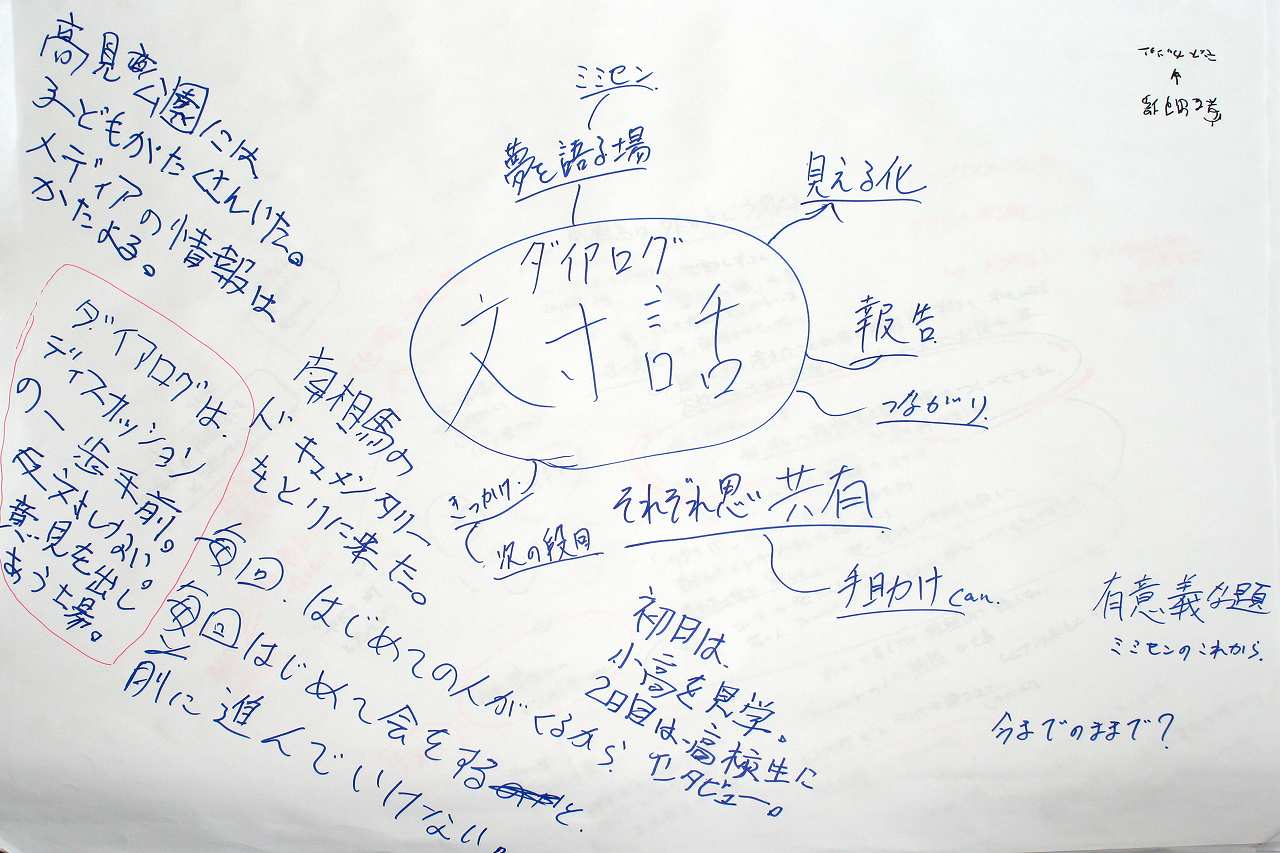 高見公園には
子どもがたくさんいた。
メディアの情報は
かたよる。
ダイアログは、
ディスカッション
の、一歩手前。
反対しない。
意見を出し
あう場。
南相馬の
ドキュメンタリー
をとりに来た。
毎回、はじめての人がくるから、
毎回はじめて会をすると、
前に進んでいけない。
ミミセン
夢を語る場
ダイアログ
対話
見える化
報告
つながり
それぞれ思い共有
手助け can.
きっかけ
次の段回
初日は、
小高を見学。
2日目は、高校生に
インタビュー。
有意義な題
ミミセンのこれから
今までのままで?